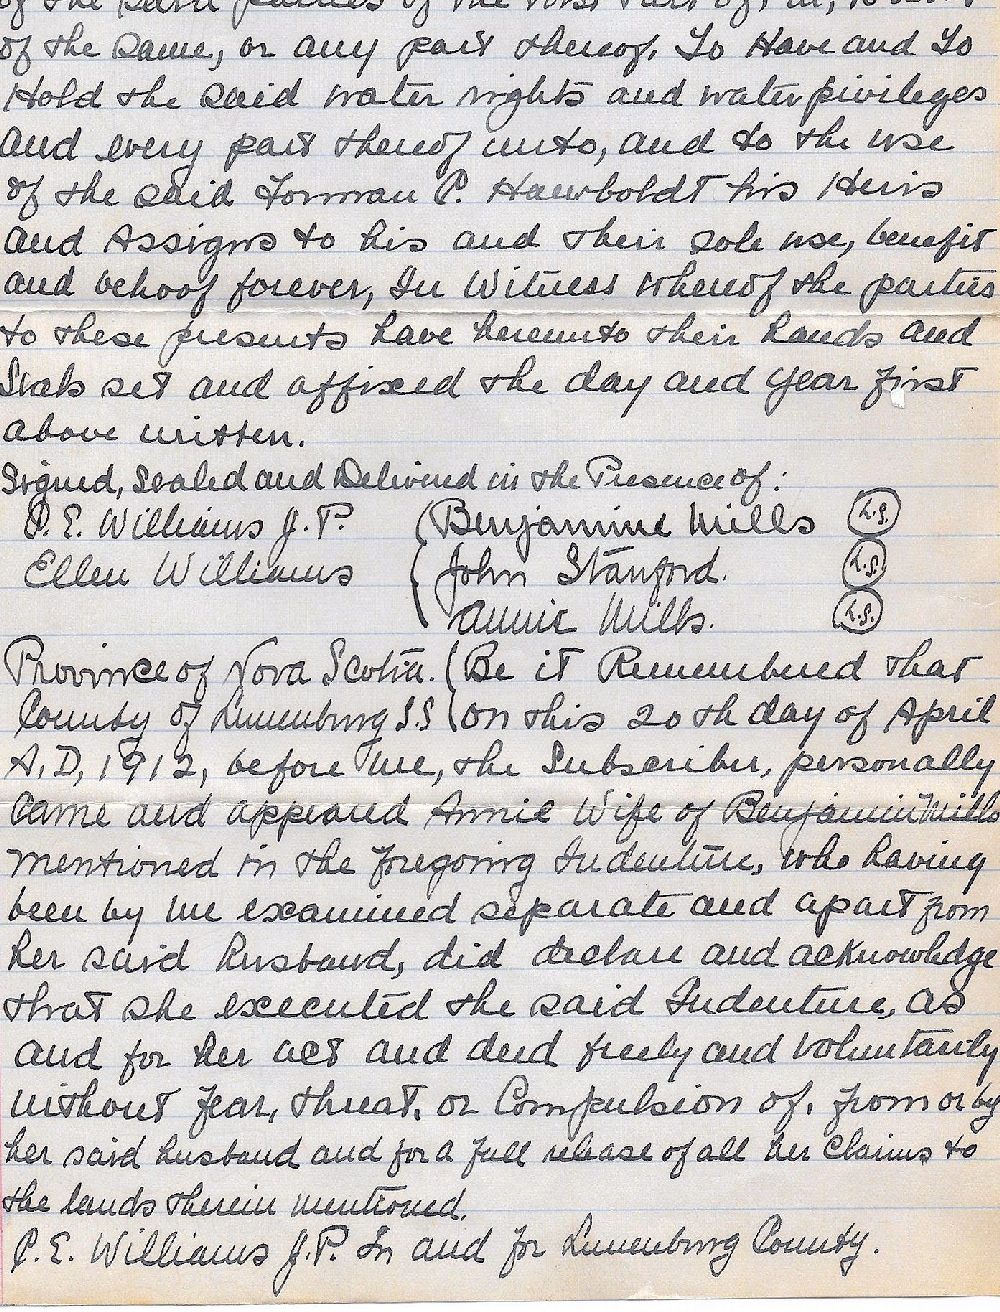 of the said parties of the First Part of, in, to or out
of the same, or any part thereof, To Have and To
Hold the said water rights and water pivileges
and every part thereof unto, and to the use
of the said Forman C. Hawboldt his Heirs
and Assigns to his and their sole use, benefit
and behoof forever, In Witness Whereof the parties
to these presents have hereunto their hands and
Seals set and affixed the day and year first
above written.
Signed, Sealed and Delivered in the Presence of:
P. E. Williams J. P. ( Benjamine Mills L.S.
Ellen Williams ( John Stanford. L.S.
Annie Mills. L.S.
Province of Nova Scotia. ( Be it Remembered that
County of Lunenburg S.S ( on this 20th day of April
A, D, 1912, before me, the Subscriber, personally
Came and appeared Annie Wife of Benjamin Mills
mentioned in the foregoing Indenture, who having
been by me examined separate and apart from
her said husband, did declare and acknowledge
that she executed the said Indenture, as
and for her act and deed freely and voluntarily
without fear, threat, or Compulsion of, from or by
her said husband and for a full release of all her claims to
the lands therein mentioned.
P. E. Williams J. P. In and for Lunenburg County.